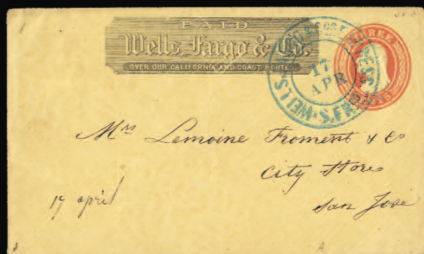 PAID
Wells, Fargo & Co.
OVER OUR CALIFORNIA AND COAST ROUTES
17
APR
WELLS
S. FR
THREE
Mrs Lemoine Froment & Co
City Store
San José
17 april